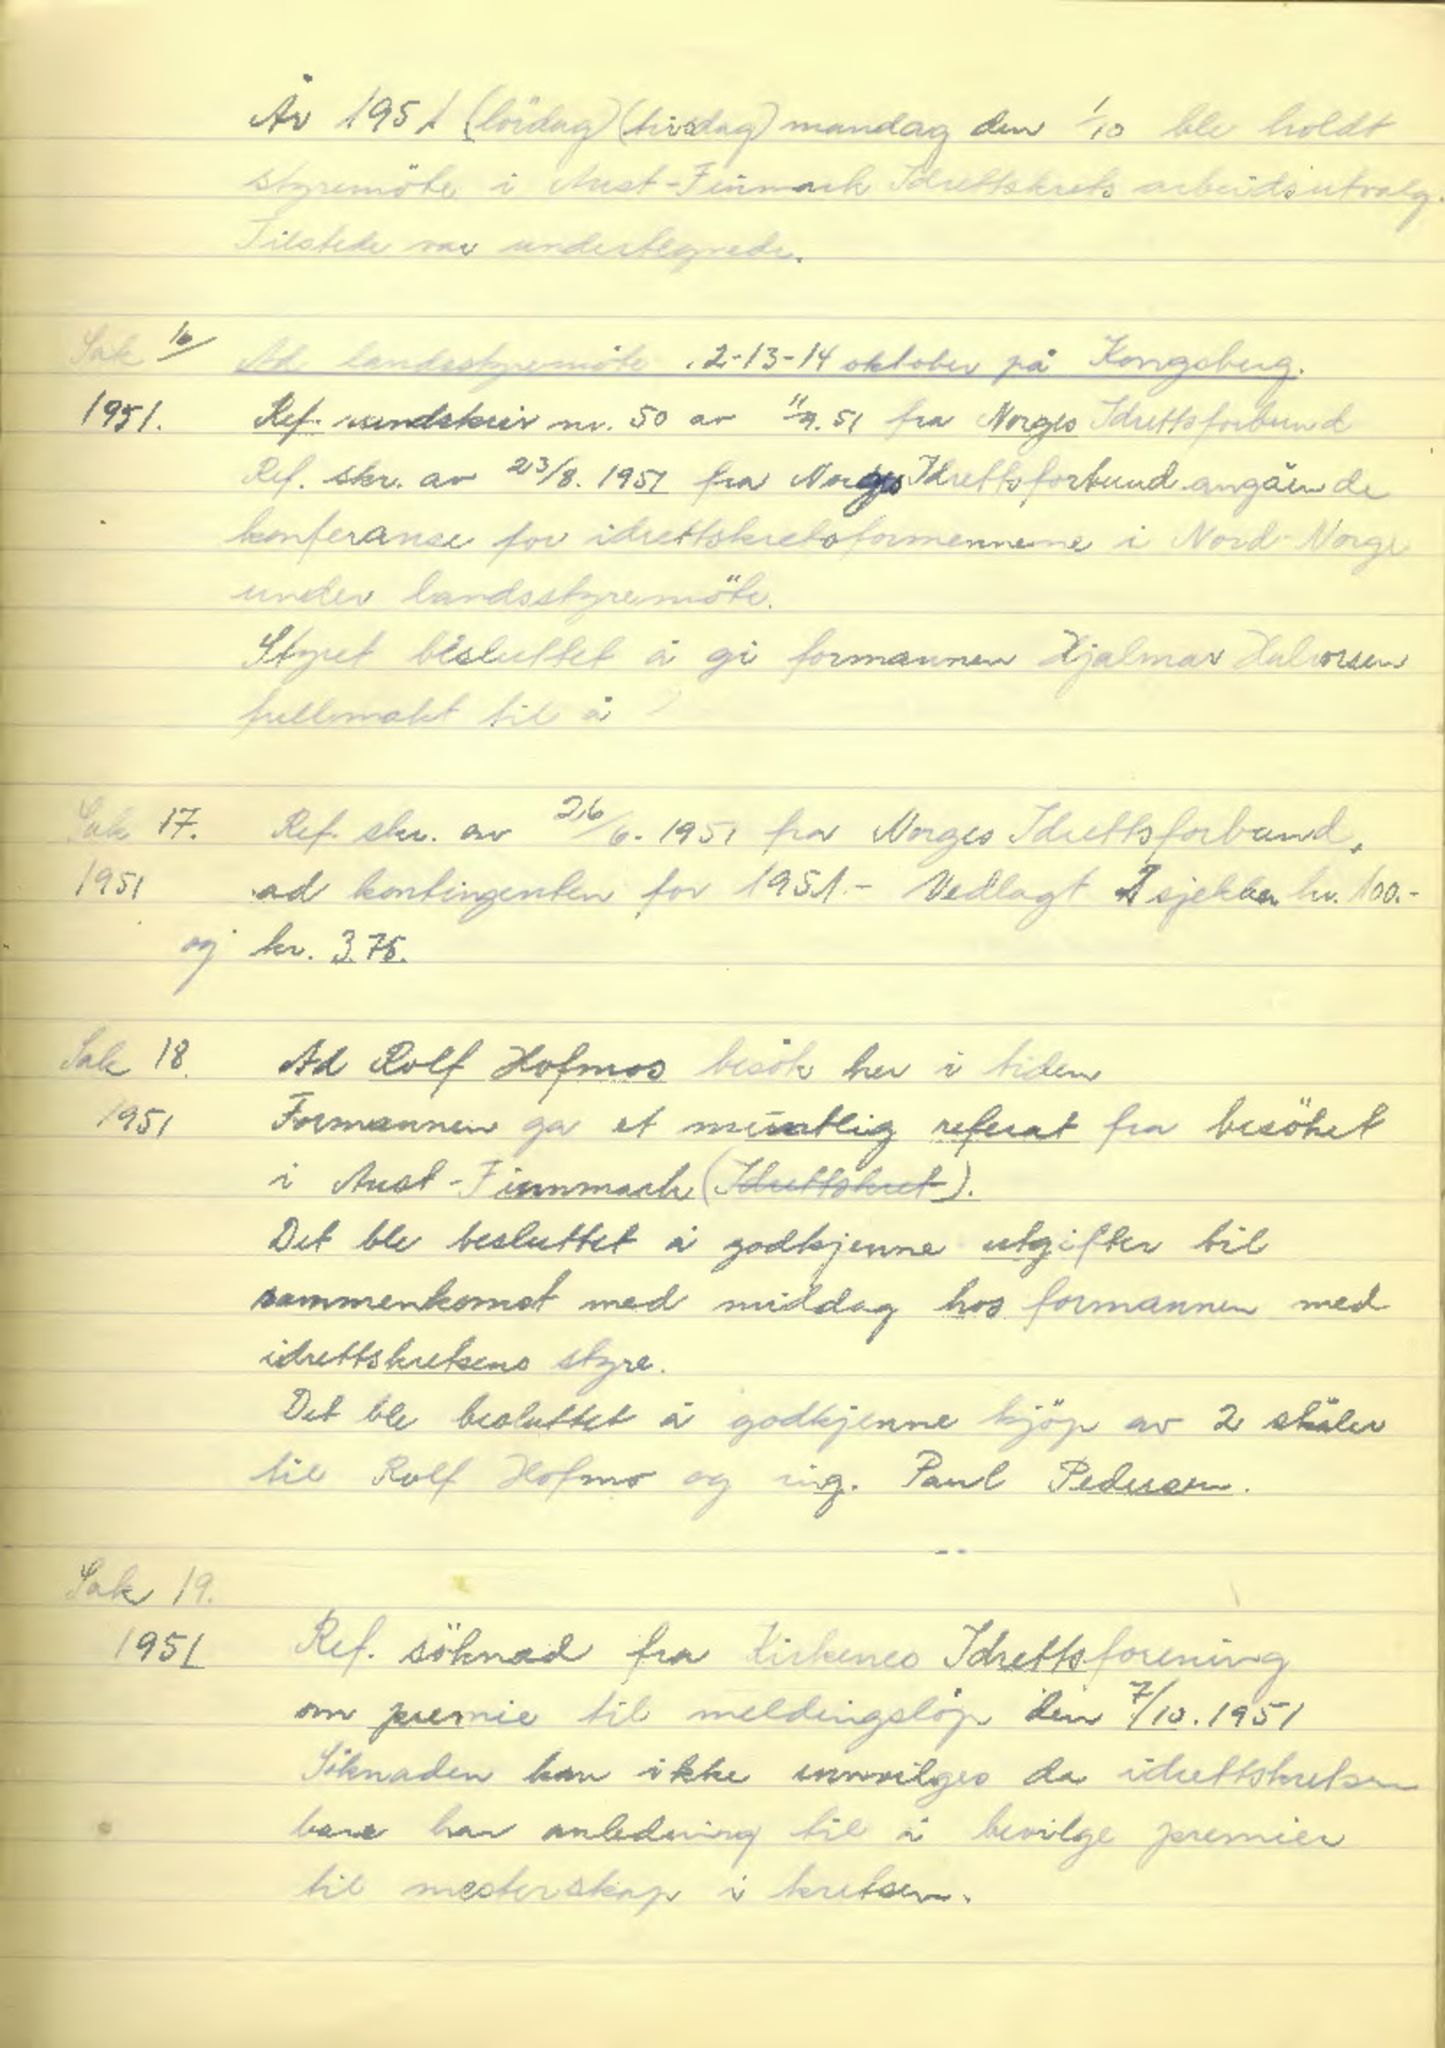 År 1951 (lördag) (tirsdag) mandag den 1/10 ble holdt
styremöte i Aust-Finmark Idrettskrets arbeidsutvalg.
Tilstede var undertegnede.
Sak 16/ Ad landsstyremöte .2-13-14 oktober på Kongsberg.
1951. Ref. rundskriv nr. 50 av 11/9.51 fra Norges Idrettsforbund
Ref. skr. av 23/8. 1951 fra Norges Idrettsforbund angående
konferanse for idrettskretsformennene i Nord-Norge
under landsstyremöte.
Styret besluttet å gi formannen Hjalmar Halvorsen
fullmakt til å
Sak 17. Ref. skr. av 26/6. 1951 fra Norges Idrettsforbund,
1951 ad kontingenten for 1951.- Vedlagt 2 sjekker kr. 100.-
og kr. 3.75.
Sak 18. Ad Rolf Hofmos besök her i tiden
1951 Formannen ga et muntlig referat fra besöket
i Aust-Finnmark (Idrettskret).
Det ble besluttet å godkjenne utgifter til
sammenkomst med middag hos formannen med
idrettskretsens styre.
Det ble besluttet å godkjenne kjöp av 2 skåler
til Rolf Hofmo og ing. Paul Pedersen.
Sak 19.
1951 Ref. söknad fra Kirkenes Idrettsforening
om premie til meldingslöp den 7/10. 1951
Söknaden kan ikke innvilges da idrettskretsen
bare har anledning til å bevilge premier
til mesterskap i kretsen.